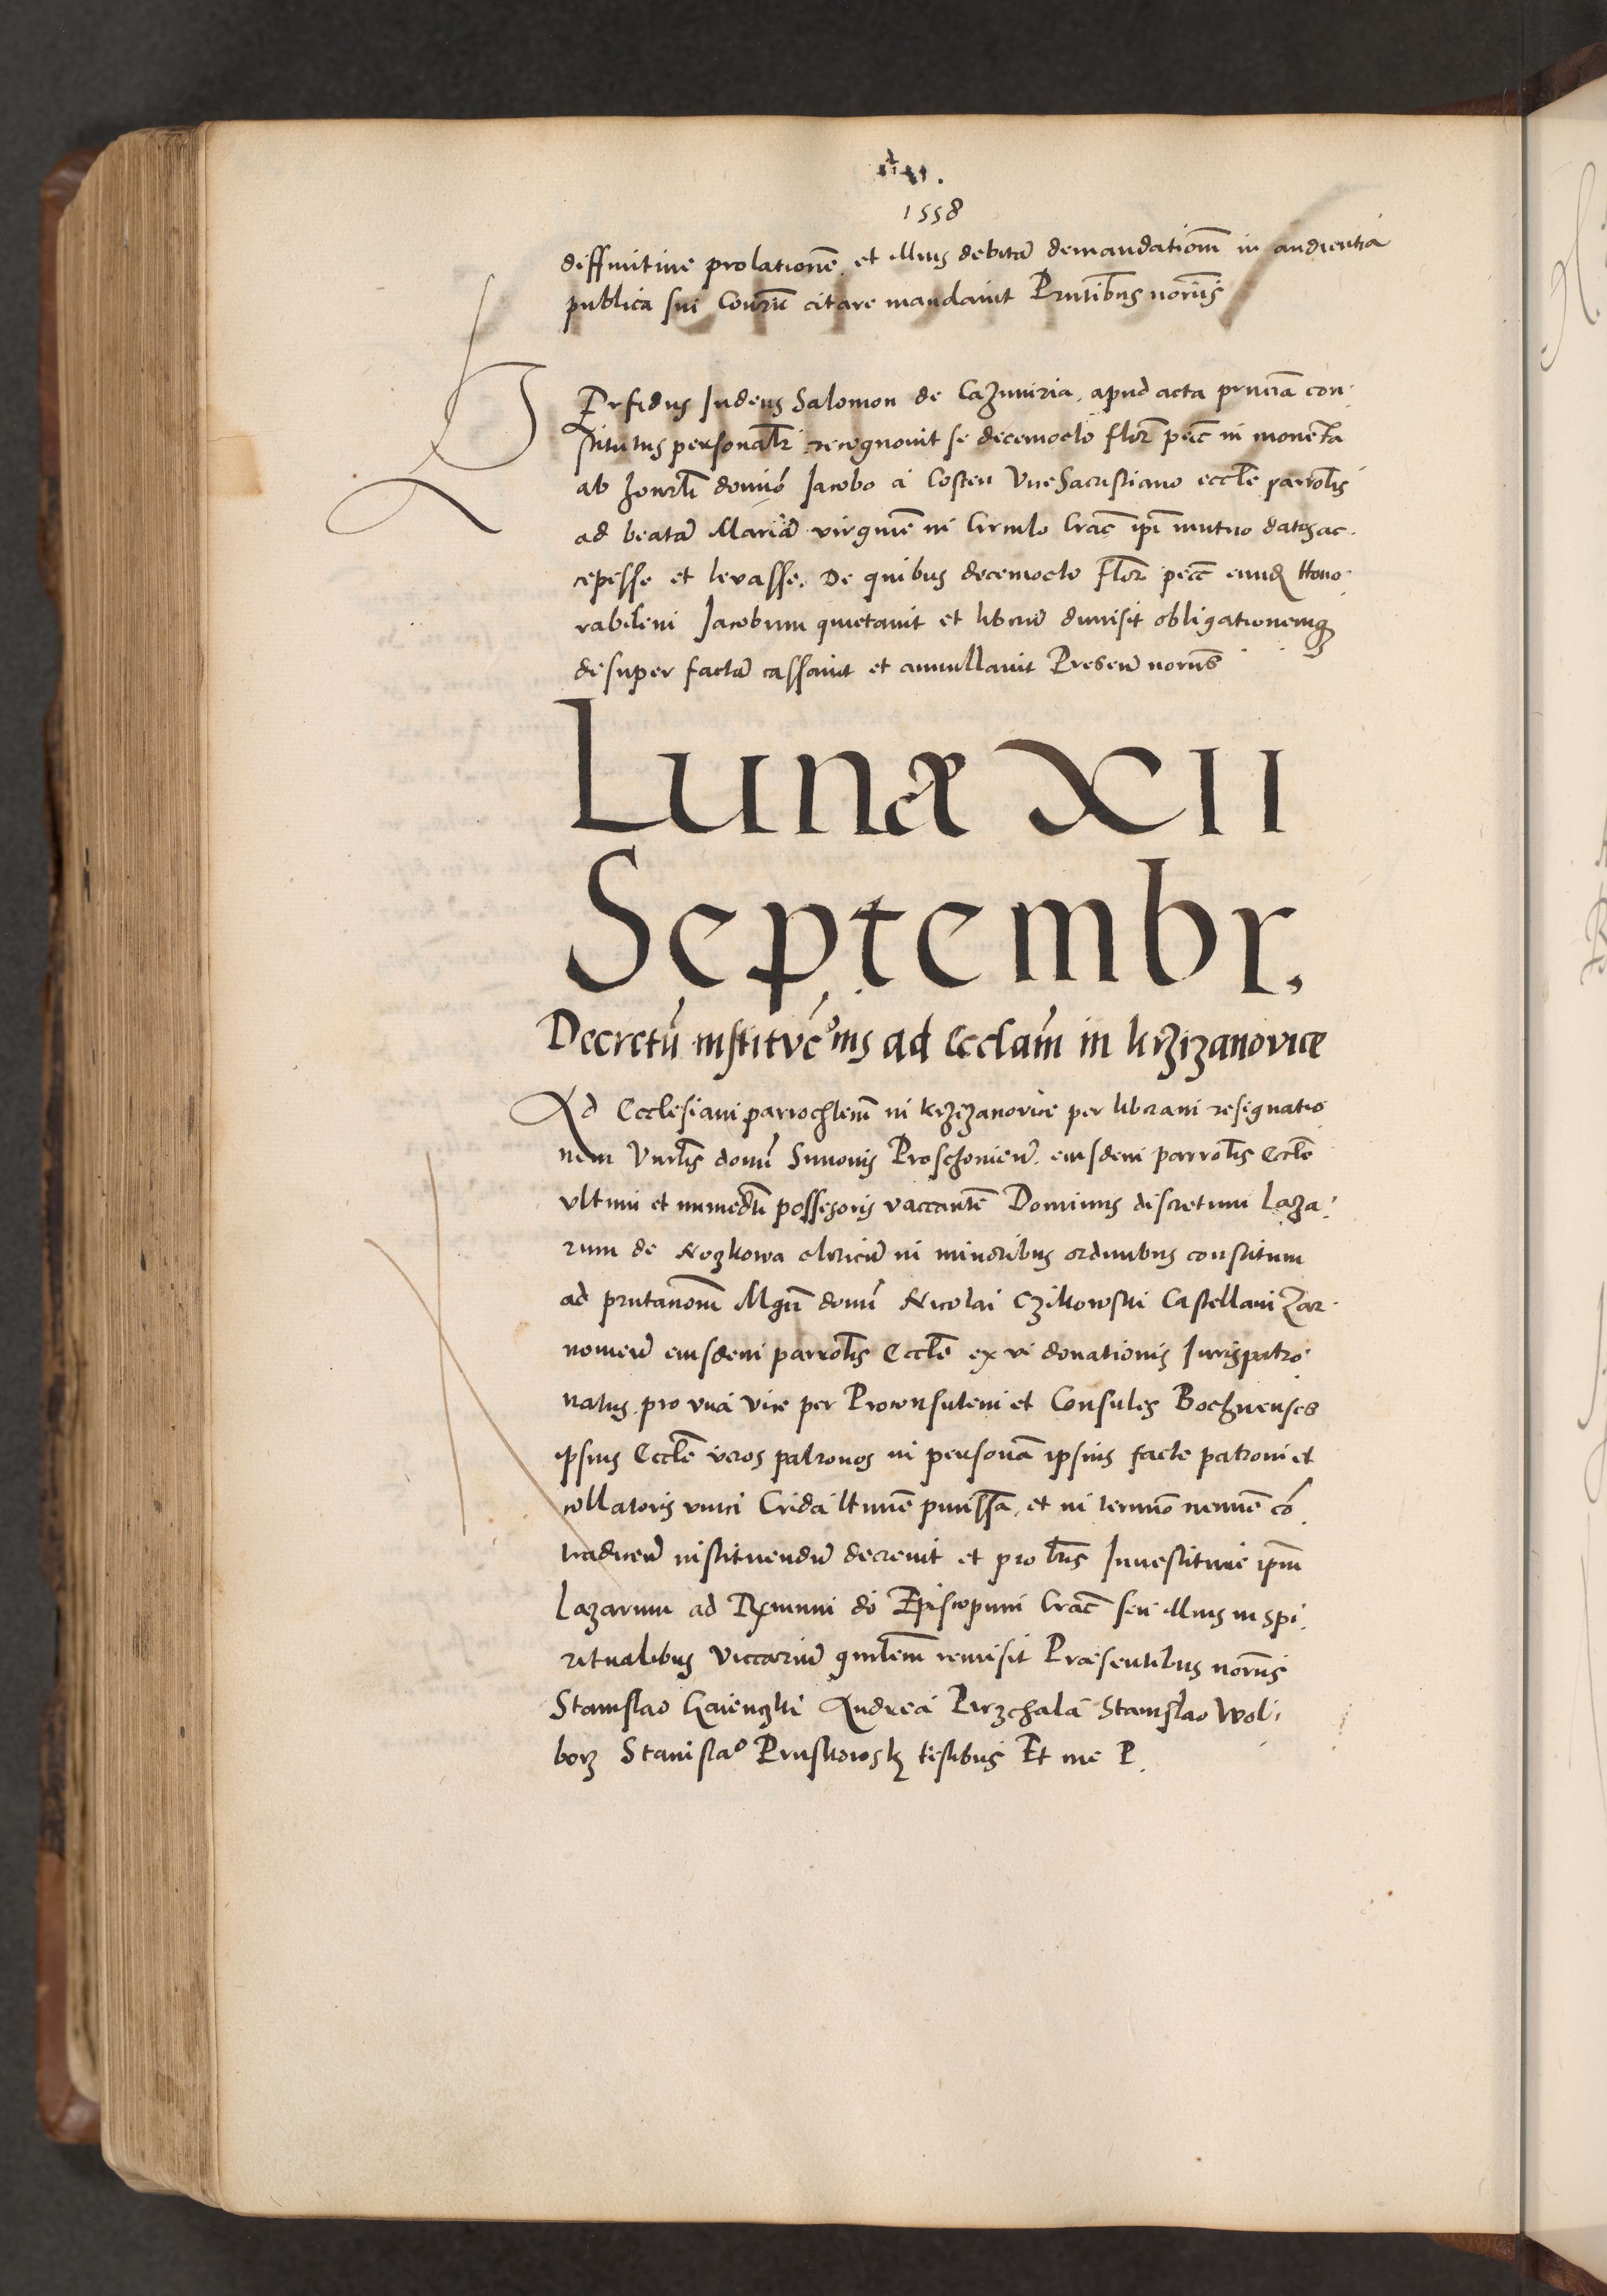 1558
diffinitive prolationē et illius debitā demandationē in audientia
publica sui Conv̄ū citare mandavit Prn̄tibus norīs
Perfidus Iudeus Salomon de Cazimiria, apud acta pn̄ciā con
stitutus personalr̄ recognovit se decemocto flor̄ pec̄ in moneta
ab honrl̄i domiō Iacobo a Costen Vicesacristiano eccl̄e parrol̄is
ad beatā Mariā virginē in Circulo Crac̄ ip̄i mutuo datos ac
cepisse et levasse. De quibus decemocto flor̄ pec̄ eund Hono
rabilem Iacobum quietavit et liberū dimisit obligationemq
desuper factā cassavit et annullavit Preseñ norīs
Lunæ XII
Septembr,
Decretū institucōnis ad Ecclām in krzizanovice
Ad Ecclesiam parrochlem̄ in krzizanovice per liberam resignatio
nem Vnrl̄is domī Simonis Proschovien̄ eiusdem parrol̄is Eccl̄e
ultimi et immedti possesoris vaccantē Dominus discretum Laza
rum de Rozkowa clericū in minoribus ordinibus constitum
ad prn̄tanom̄ Mgn̄ domī Nicolai Czikowski Castellani Zar
novien̄ eiusdem parrol̄is Eccl̄e ex vi donationis Iurispatro
natus pro una vice per Proconsulem et Consules Bochnenses
ipsius Eccl̄e veros patronos in personā ipsius facte patroni et
collatoris unici Crida ltimē pmissa, et in termō neminē cō
tradicen̄ instituendū decrevit et pro lr̄is Investiture ip̄m
Lazarum ad Rx̄mum dō Episcopum Crac̄ seu illius in spi
ritualibus Viccariū gn̄lem̄ remisit Præsentibus norīs
Stanislao Andrea Pirzchala Stanislao Wol
borz Stanislao Pruskowsk testibus Et me P.